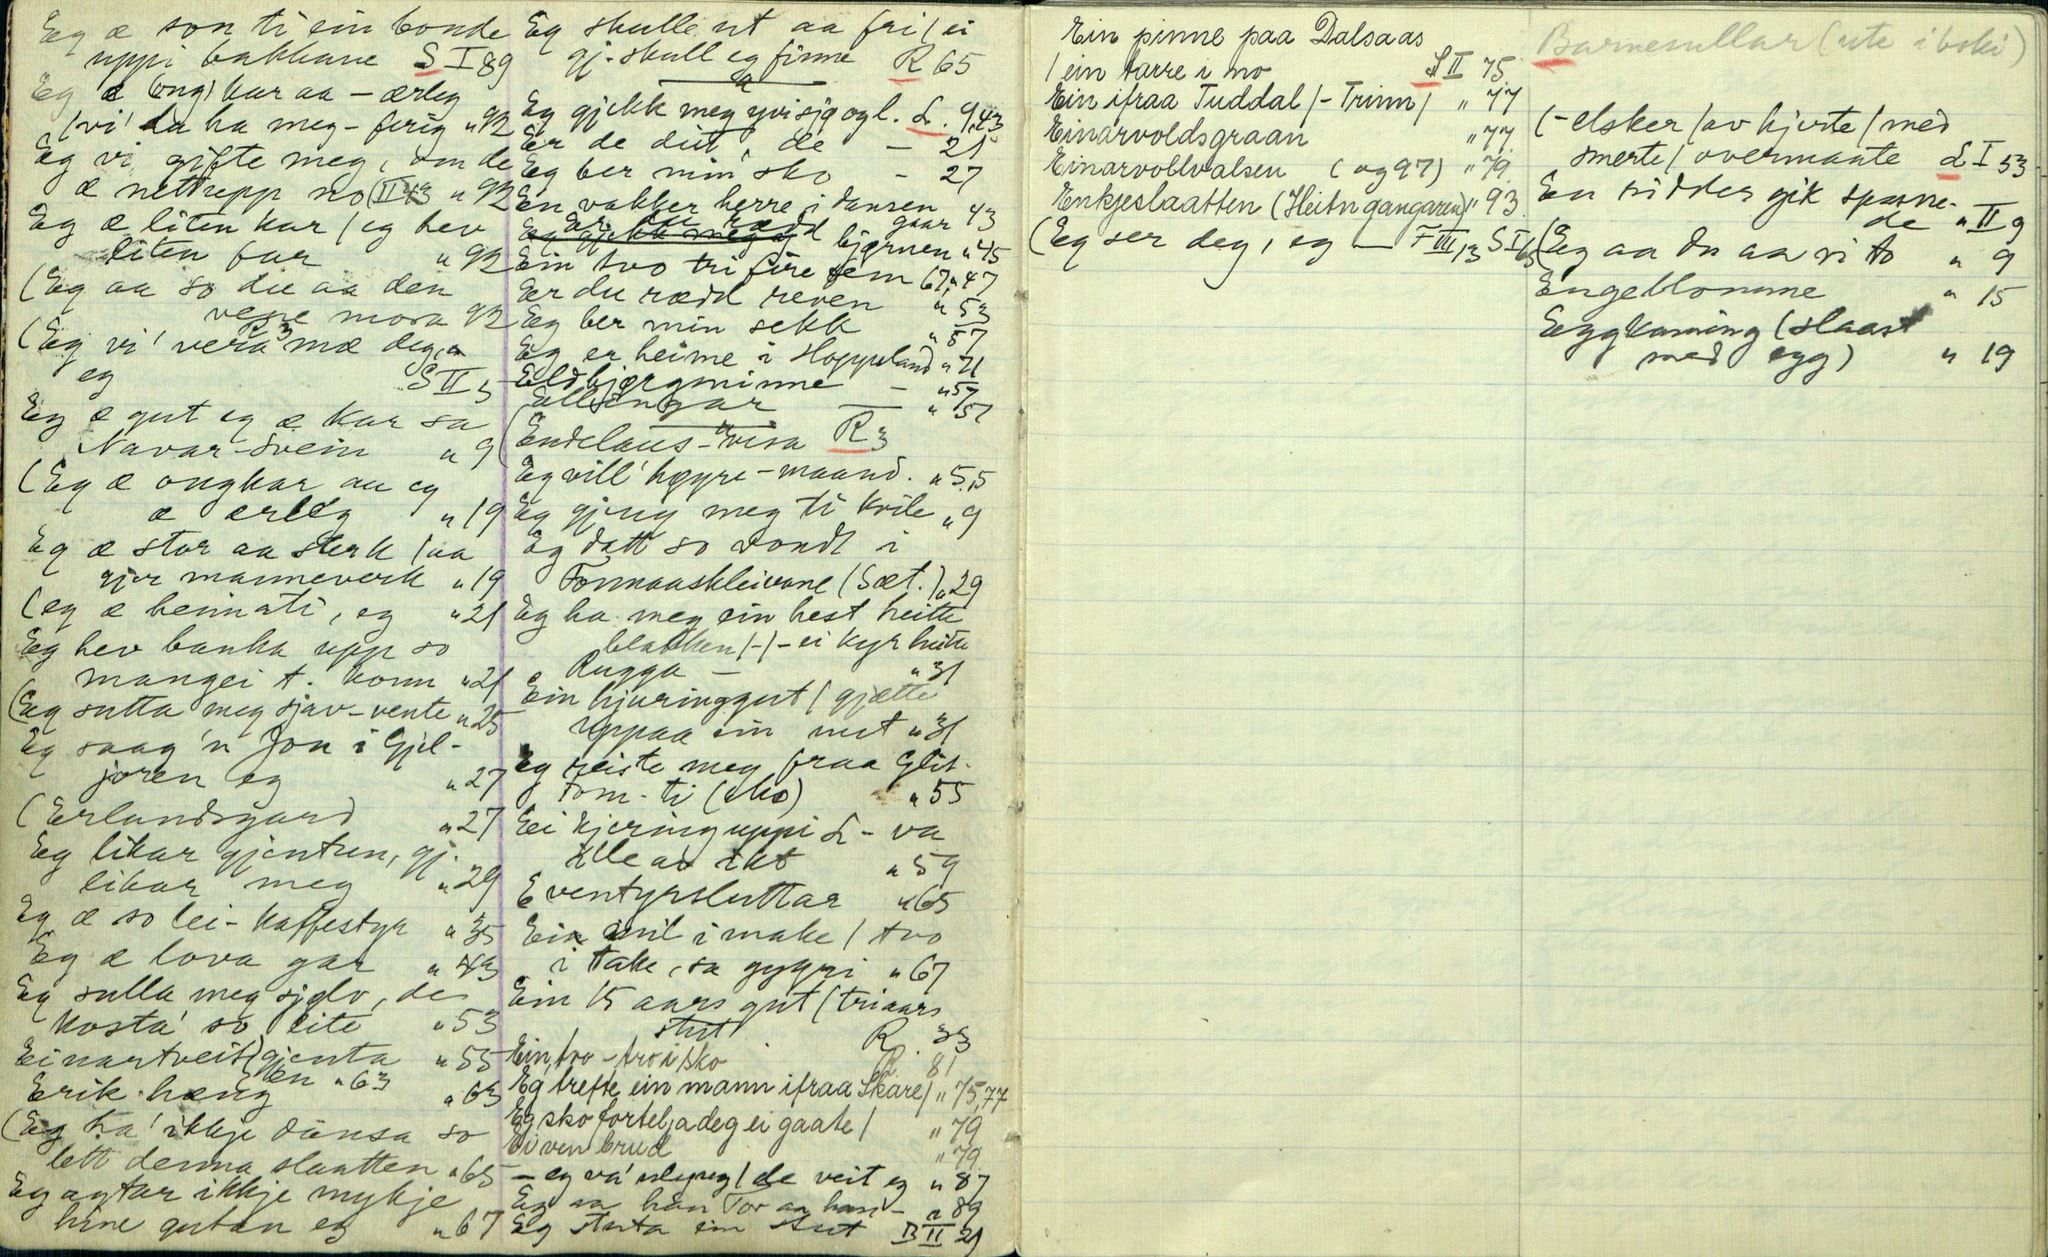 Eg æ son ti ein bonde
uppi bakkane S I 89
Eg æ (ong) kar aa - ærleg
/ vi' da ha meg - ferig " 93
Eg vi gifte meg, om de
æ nettupp no (II 43 " 93
Eg æ liten kar / eg hev
liten far " 93
(Eg aa so du aa den
vene mora 93
(Eg vi' vera mæ deg, "
eg S II 3
Eg æ gut eg æ kar sa
Navar-Svein " 9
(Eg æ ongkar au eg
æ ærleg " 19
Eg æ stor aa sterk / aa
gjer manneverk " 19
(eg æ heimati, eg " 21
Eg hev banka upp so
mangei t. konn " 21
(Eg sutta meg sjav-vente " 25
Eg saag 'n Jon i Gjel-
joren eg " 27
(Erlandsgard " 27
Eg likar gjentun, gj.
likar meg " 29
Eg æ so lei - kaffestyr " 35
Eg æ lova gar " 43
Eg sulla meg sjølv, de
kosta' so lite " 53
Einartveit) gjenta " 55
en " 63
Erik hæng " 63
(Eg ha' ikkje dansa so
lett denna slaatten " 65
Eg agtar ikkje mykje
hine gutan eg " 67
Eg skulle ut aa fri / ei
gj. skull eg finne R 65
Eg gjekk meg yvi sjø og l. L. 9,43
Er de dit, de - 21
Eg ber min sko - 27
En vakker herre i dansen
gaar 43
Er du rædd bjørnen " 45
Ein tvo tri fire fem 67, " 47
Er du rædd reven " 53
Eg ber min sekk " 57
Eg er heime i Hoppeland " 71
Eldbjørgminne - " 57
Ellingar - " 51
(Endelaus-visa R 3
Eg vill' høyre - maand. " 5,15
Eg gjeng meg ti kvile " 9
Eg datt so vondt i
Formaaskleivane (Sæt.) " 29
Eg ha meg ein hest heitte
blakken /-/- ei kyr heitte
Rugga - " 31
Ein hjuringgut / gjætte
uppaa ein nut " 31
Eg reiste meg fraa Glit-
tom - ti (sko) " 55
Ei kjering uppi L - va
ille av ikt " 59
Eventyrsluttar " 65
Ein mil i make / tvo
i take, sa gygri " 67
Ein 15 aars gut (triaars
stut R. 33
Ein, tvo - tro i sko R. 81
Eg trefte ein mann ifraa Skare / " 75,77
Eg sko fortelja deg ei gaate / " 79
Ei ven brud " 79
- eg va' uløyeg / de veit eg " 87
Eg aa han Tor aa han - " 89
Eg stuta ein stut B II 21
Ein pinne paa Dalsaas
/ ein tarre i mo S II 75
Ein ifraa Tuddal / - Trinn / " 77
Einarvoldsgraan " 77
Einarvollvalsen (og 97) " 79
Enkjeslaatten (Heitn gangaren) " 93
(Eg ser deg, eg - F III, 13 S I 65
Barnesullar (ute i boki)
(- elsker / av hjerte / med
smerte / overmaate L I 53
En ridder gik spasse-
de " II 9
(Eg aa du aa vi to " 9
Engeblomme " 15
Eggkaming (slaast
med egg) " 19